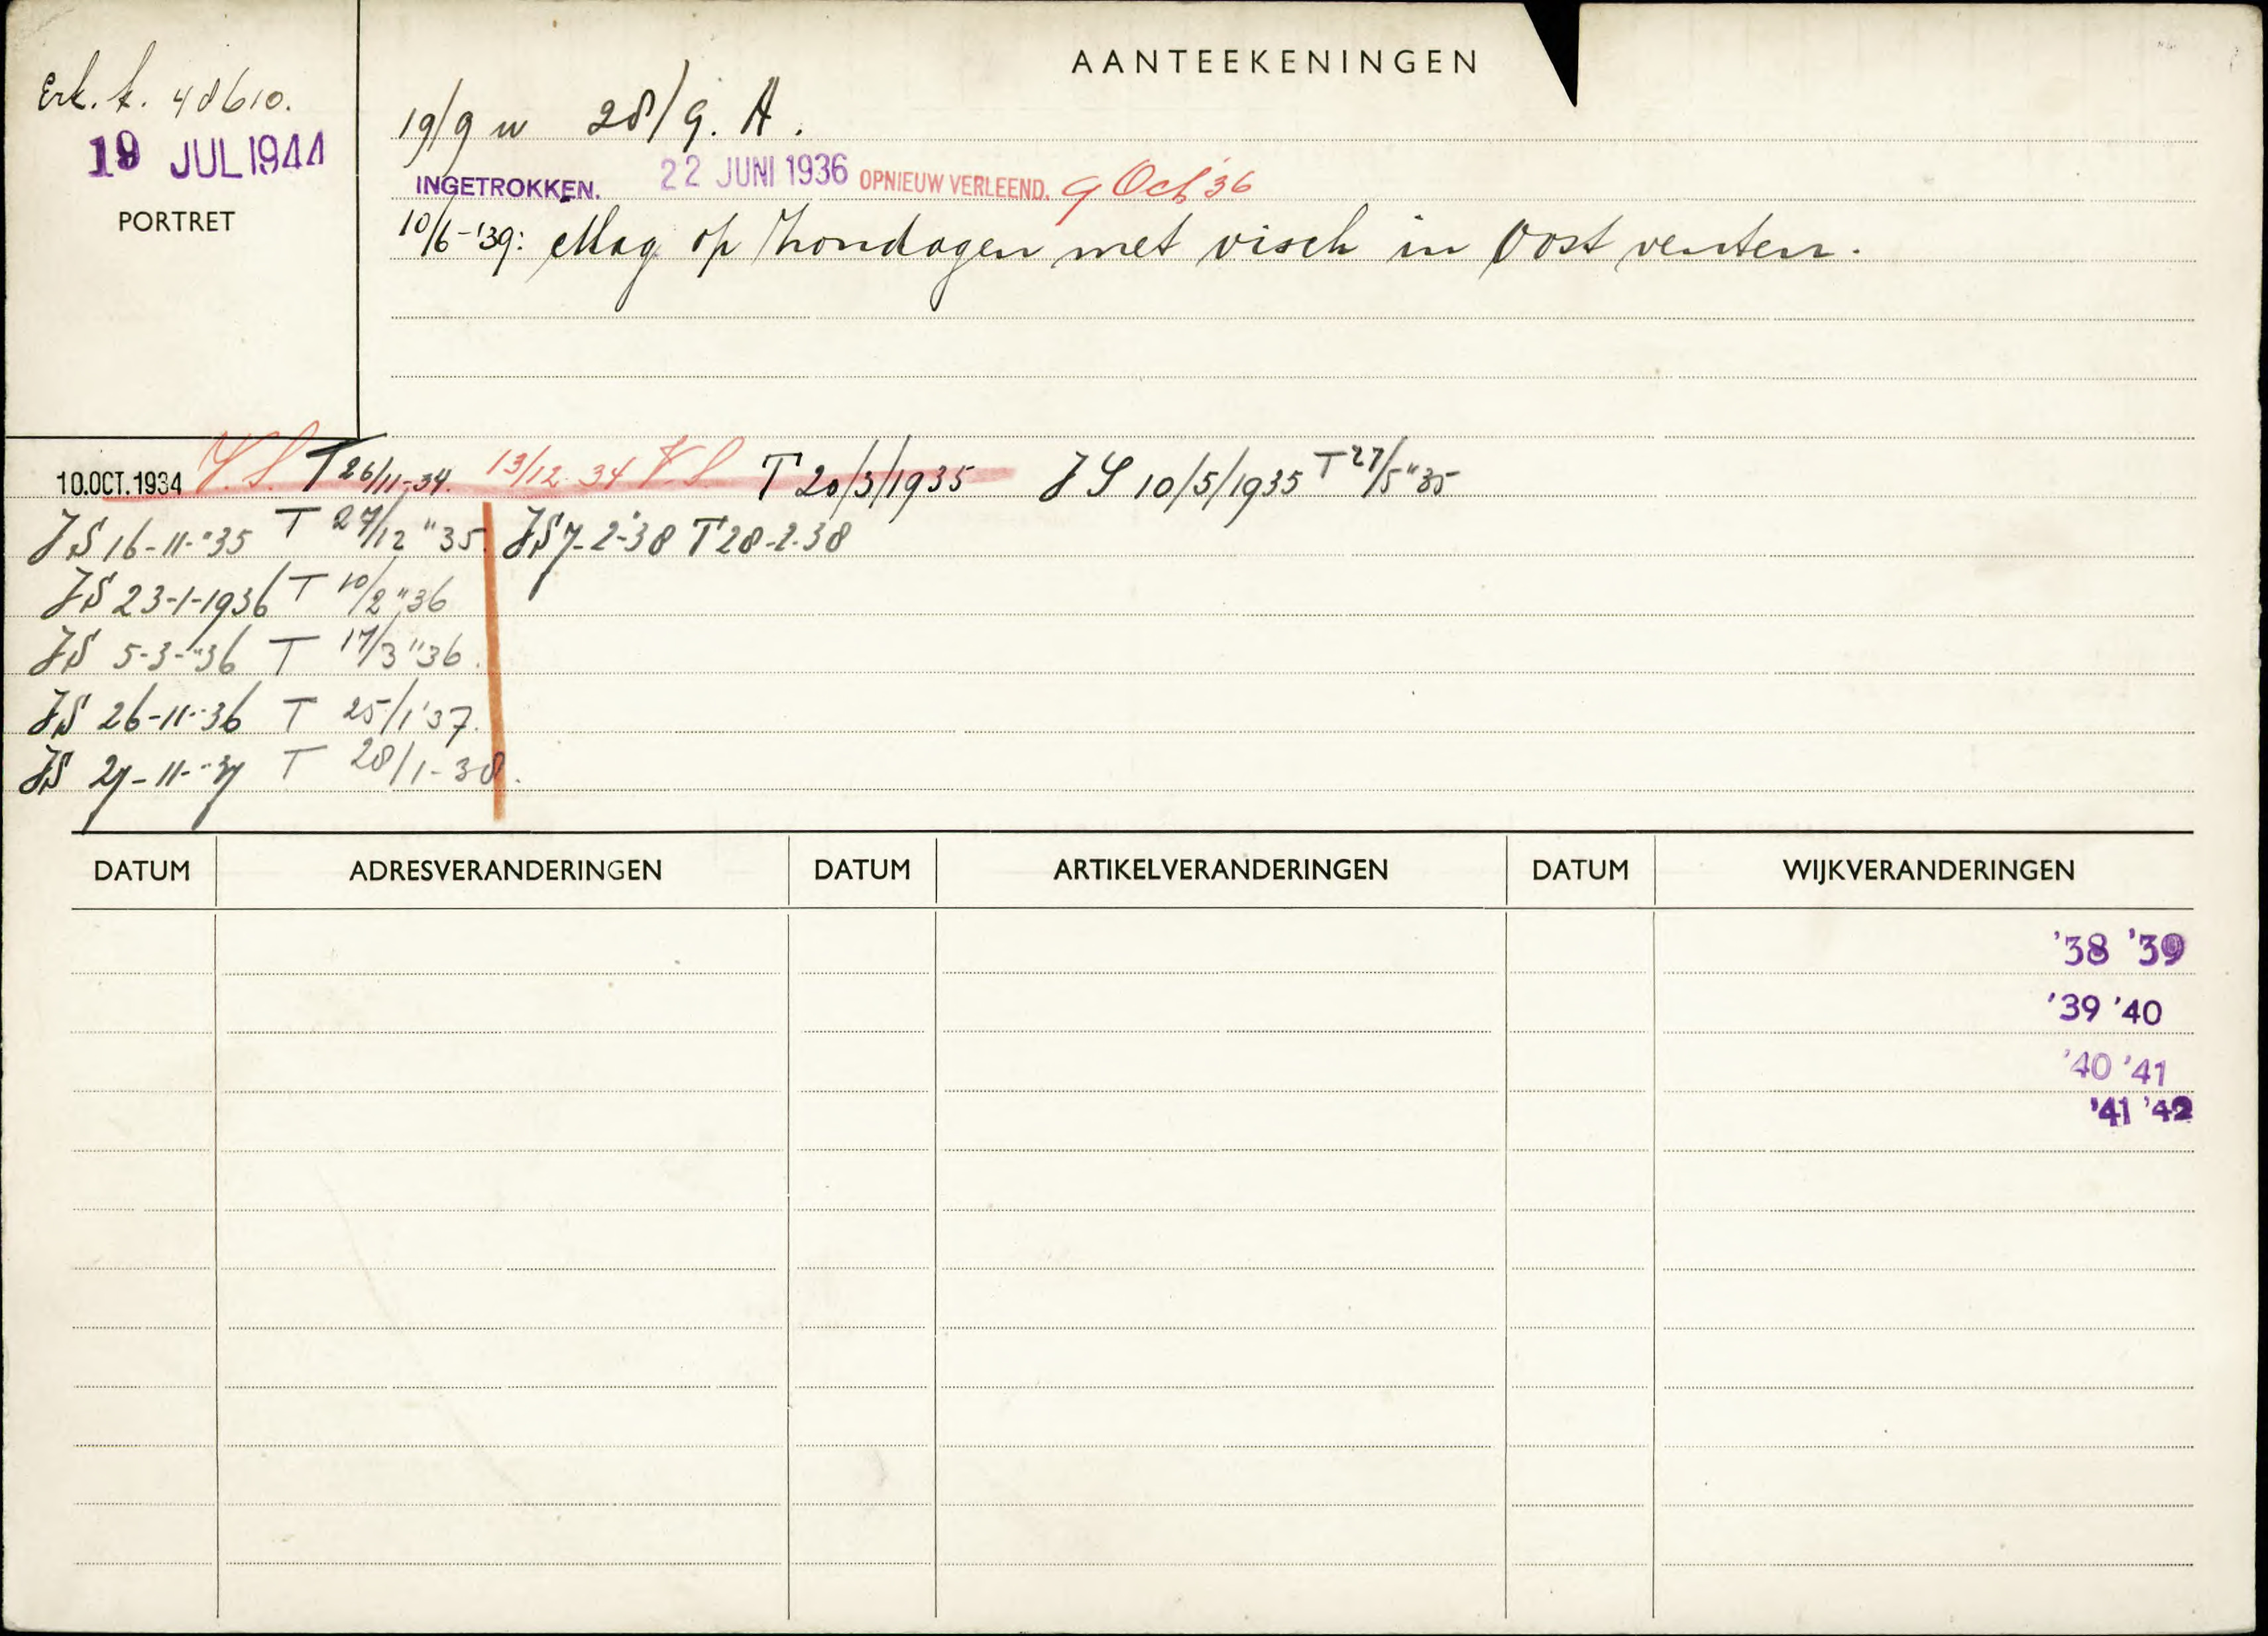 AANTEEKENINGEN
Erk. k. 48610.
19 JUL 1944
PORTRET
19/9 w 28/9. A.
INGETROKKEN. 22 JUNI 1936 OPNIEUW VERLEEND. 9 Oct '36
10/6-'39: Mag op Zondagen met visch in Oost venten.
10.OCT.1934 V.S. T 26/11-34. 13/12-34 V.S. T 20/3/1935 JS 10/5/1935 T 27/5 "35
JS 16-11-"35 T 27/12 "35. JS 7-2-38 T 28-2-38
JS 23-1-1936 T 10/2 "36
JS 5-3-"36 T 17/3 "36.
JS 26-11-36 T 25/1 '37.
JS 27-11-"37 T 28/1-38.
DATUM ADRESVERANDERINGEN DATUM ARTIKELVERANDERINGEN DATUM WIJKVERANDERINGEN
'38 '39
'39 '40
'40 '41
'41 '42